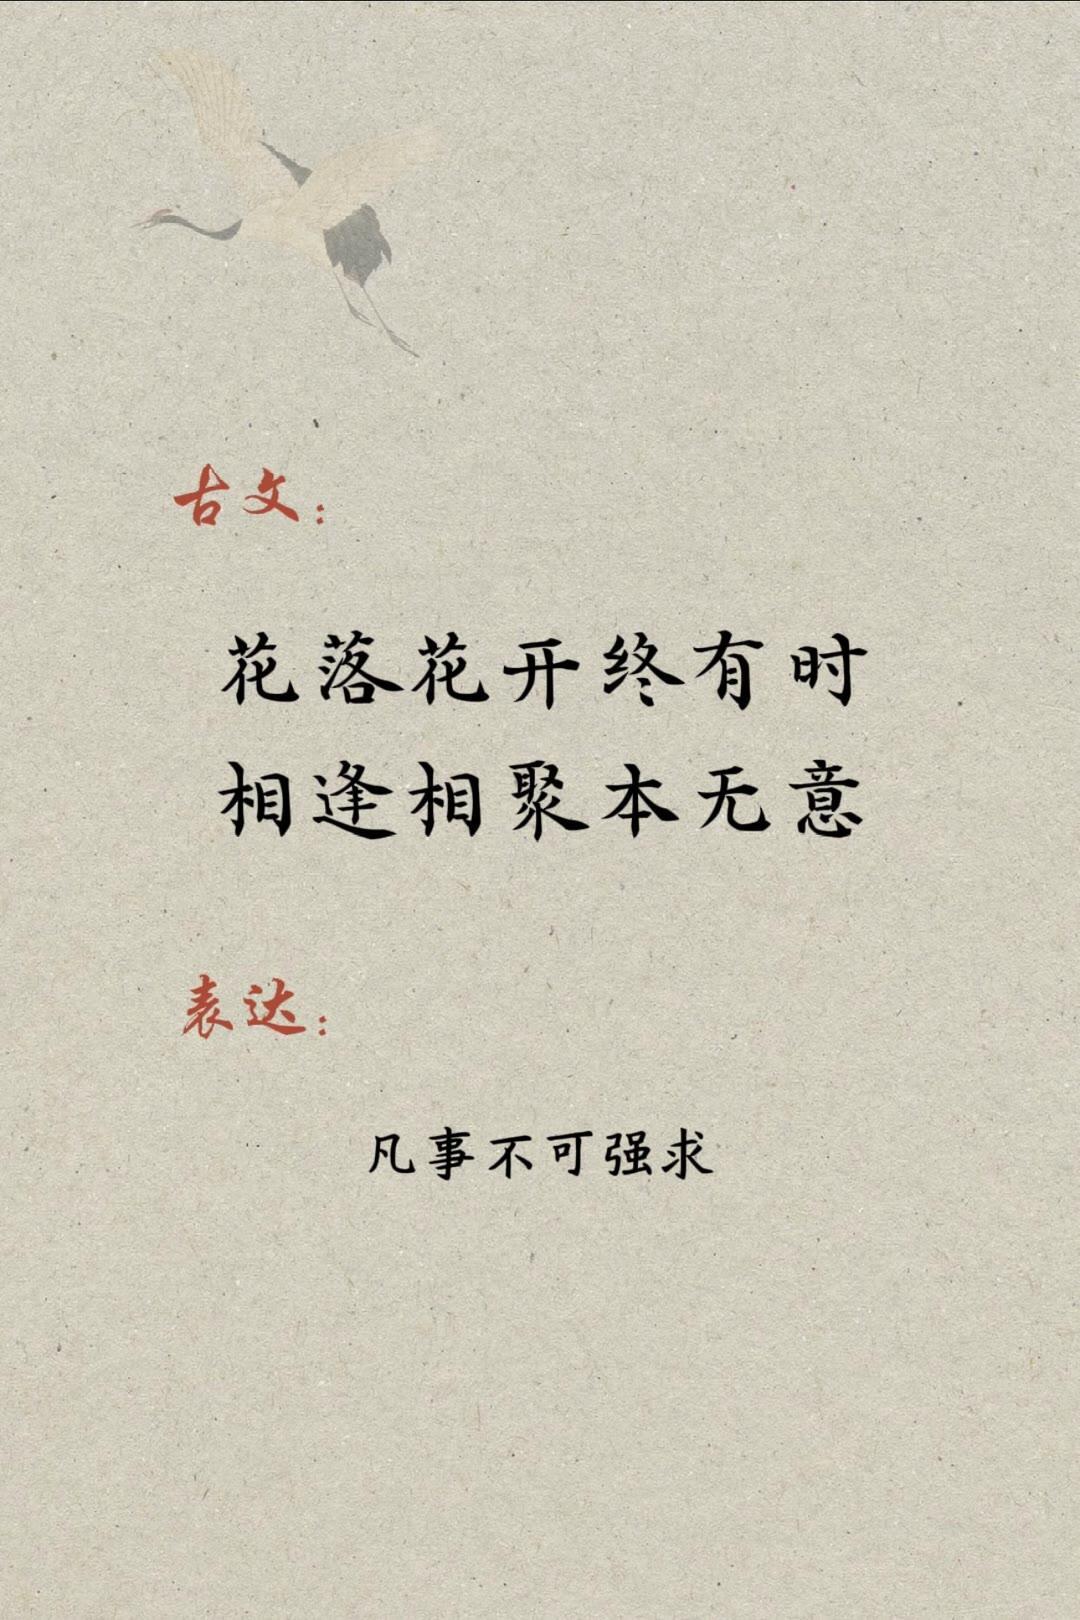 古文：
花落花开终有时
相逢相聚本无意
表达：
凡事不可强求